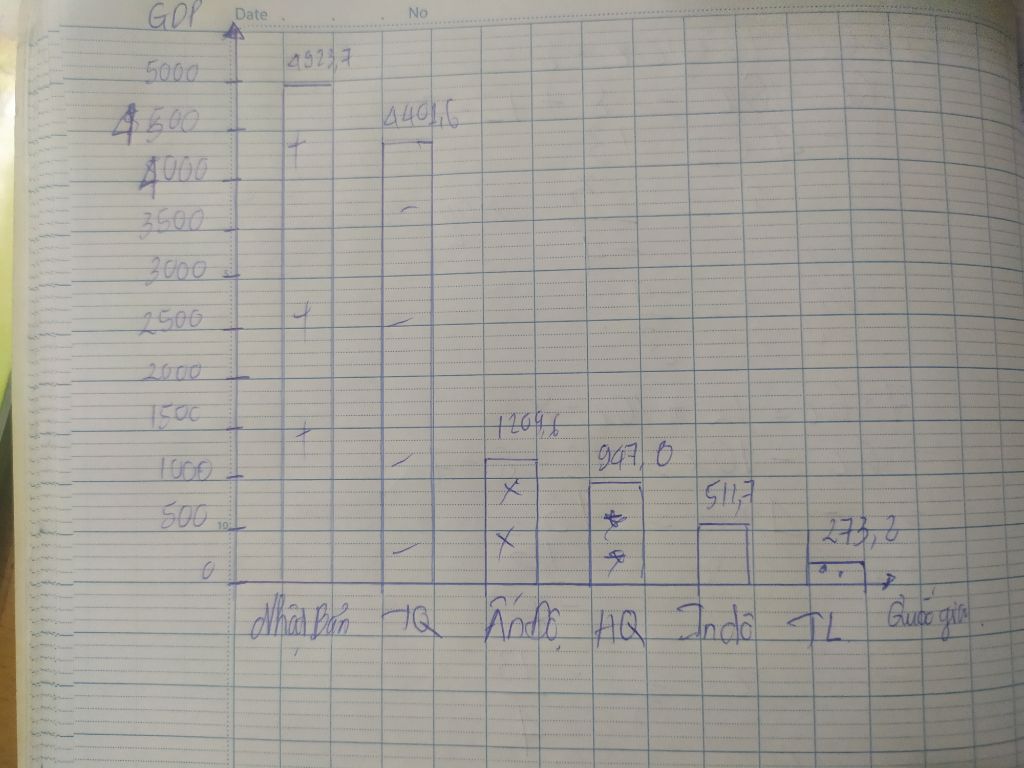 GDP
Date . . . No
5000
4500
4000
3500
3000
2500
2000
1500
1000
500
0
10
4923,7
4401,6
1209,6
947,0
511,7
273,2
Nhật Bản TQ Ấn Độ HQ Indô TL Quốc gia